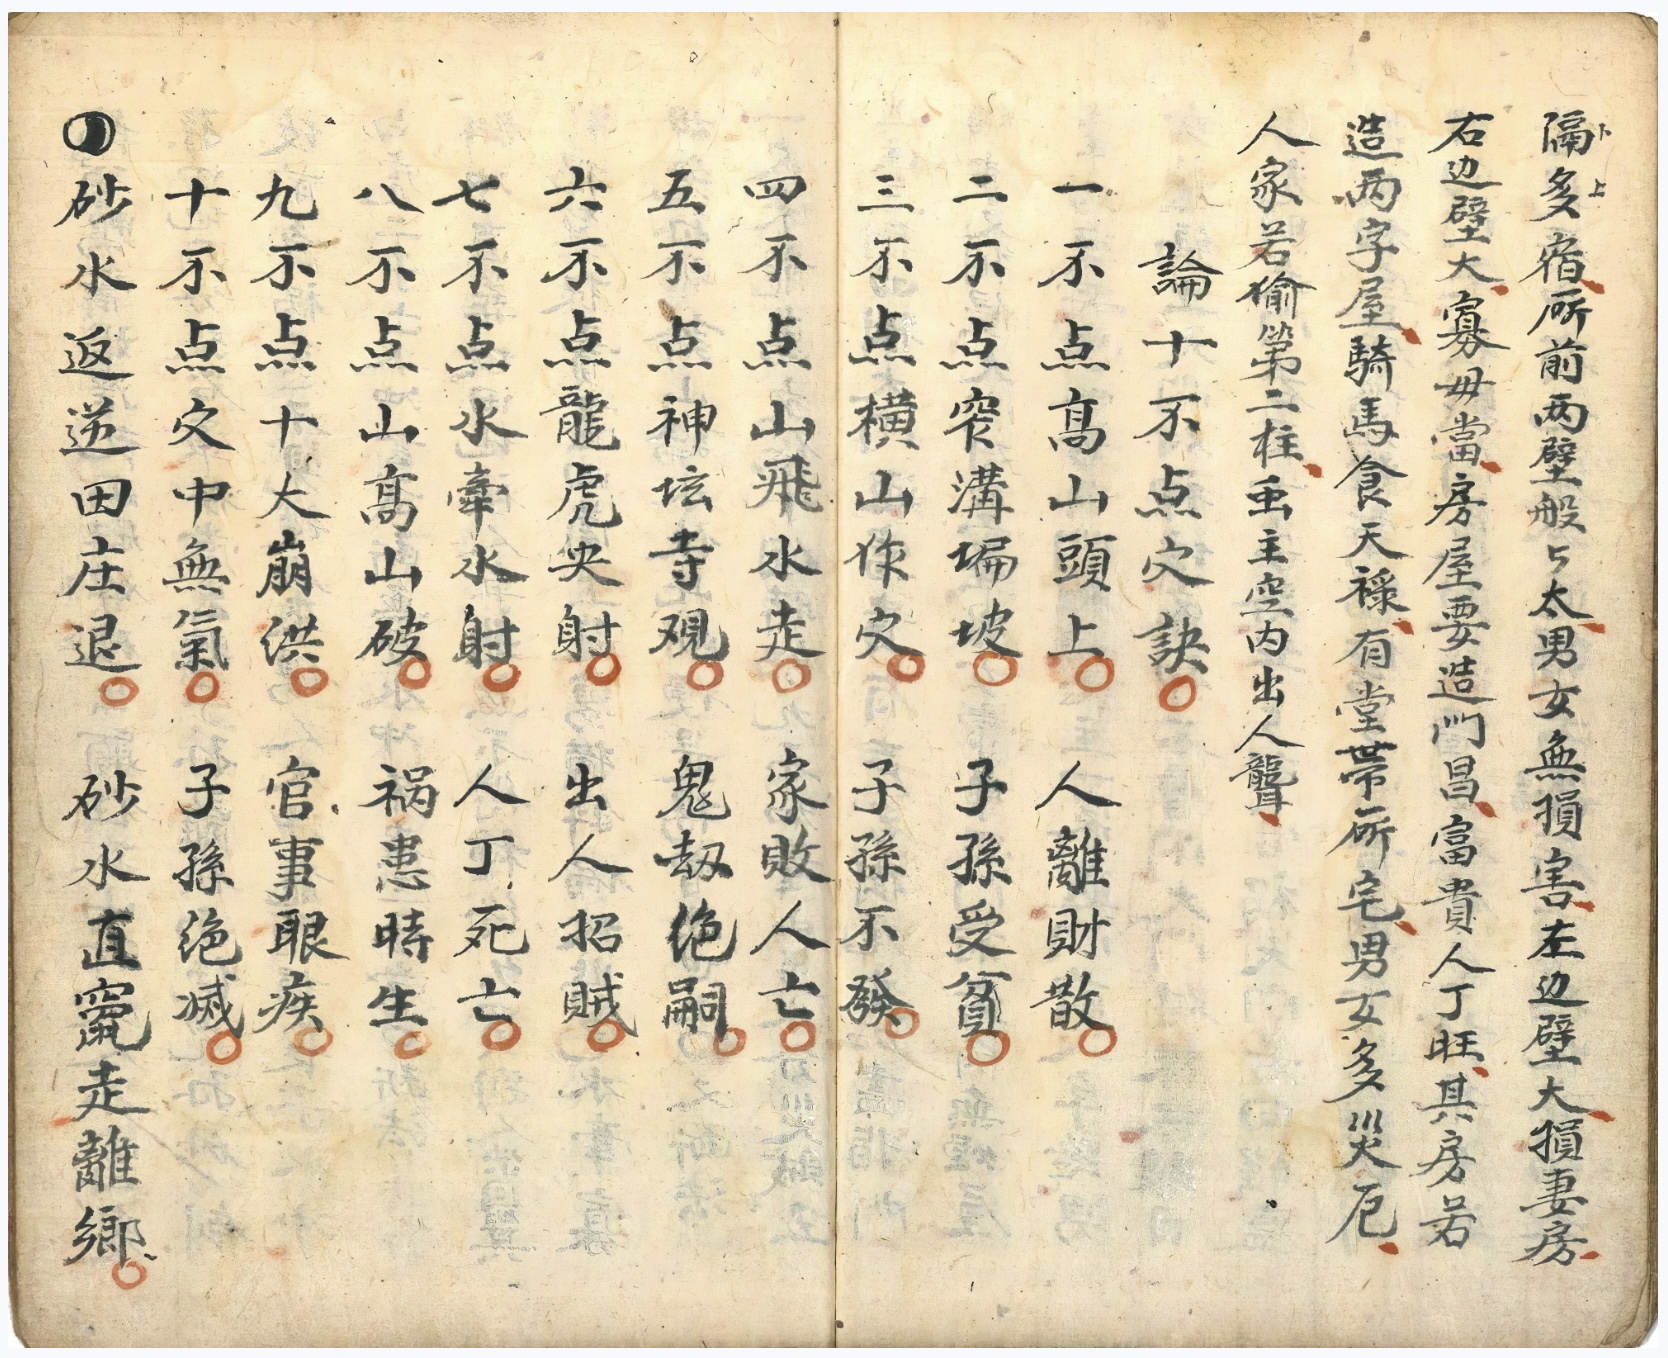 隔多宿所前両壁般与太男女無損害左边壁大損妻房
右边壁大寡母當房屋要造門昌富貴人丁旺其房若
造両字屋騎馬食天祿有堂帶所宅男女多災厄
人家若偷第二柱重主空内出人聾
論十不点穴訣
一不点高山頭上 人離財散
二不点窄溝塥坡 子孫受貧
三不点横山作穴 子孫不發
四不点山飛水走 家敗人亡
五不点神坛寺观 鬼劫绝嗣
六不点龍虎尖射 出人招賊
七不点水牽水射 人丁死亡
八不点山高山破 祸患時生
九不点十大崩洪 官事眼疾
十不点穴中無氣 子孫绝滅
砂水返逆田庄退 砂水直竄走離鄉